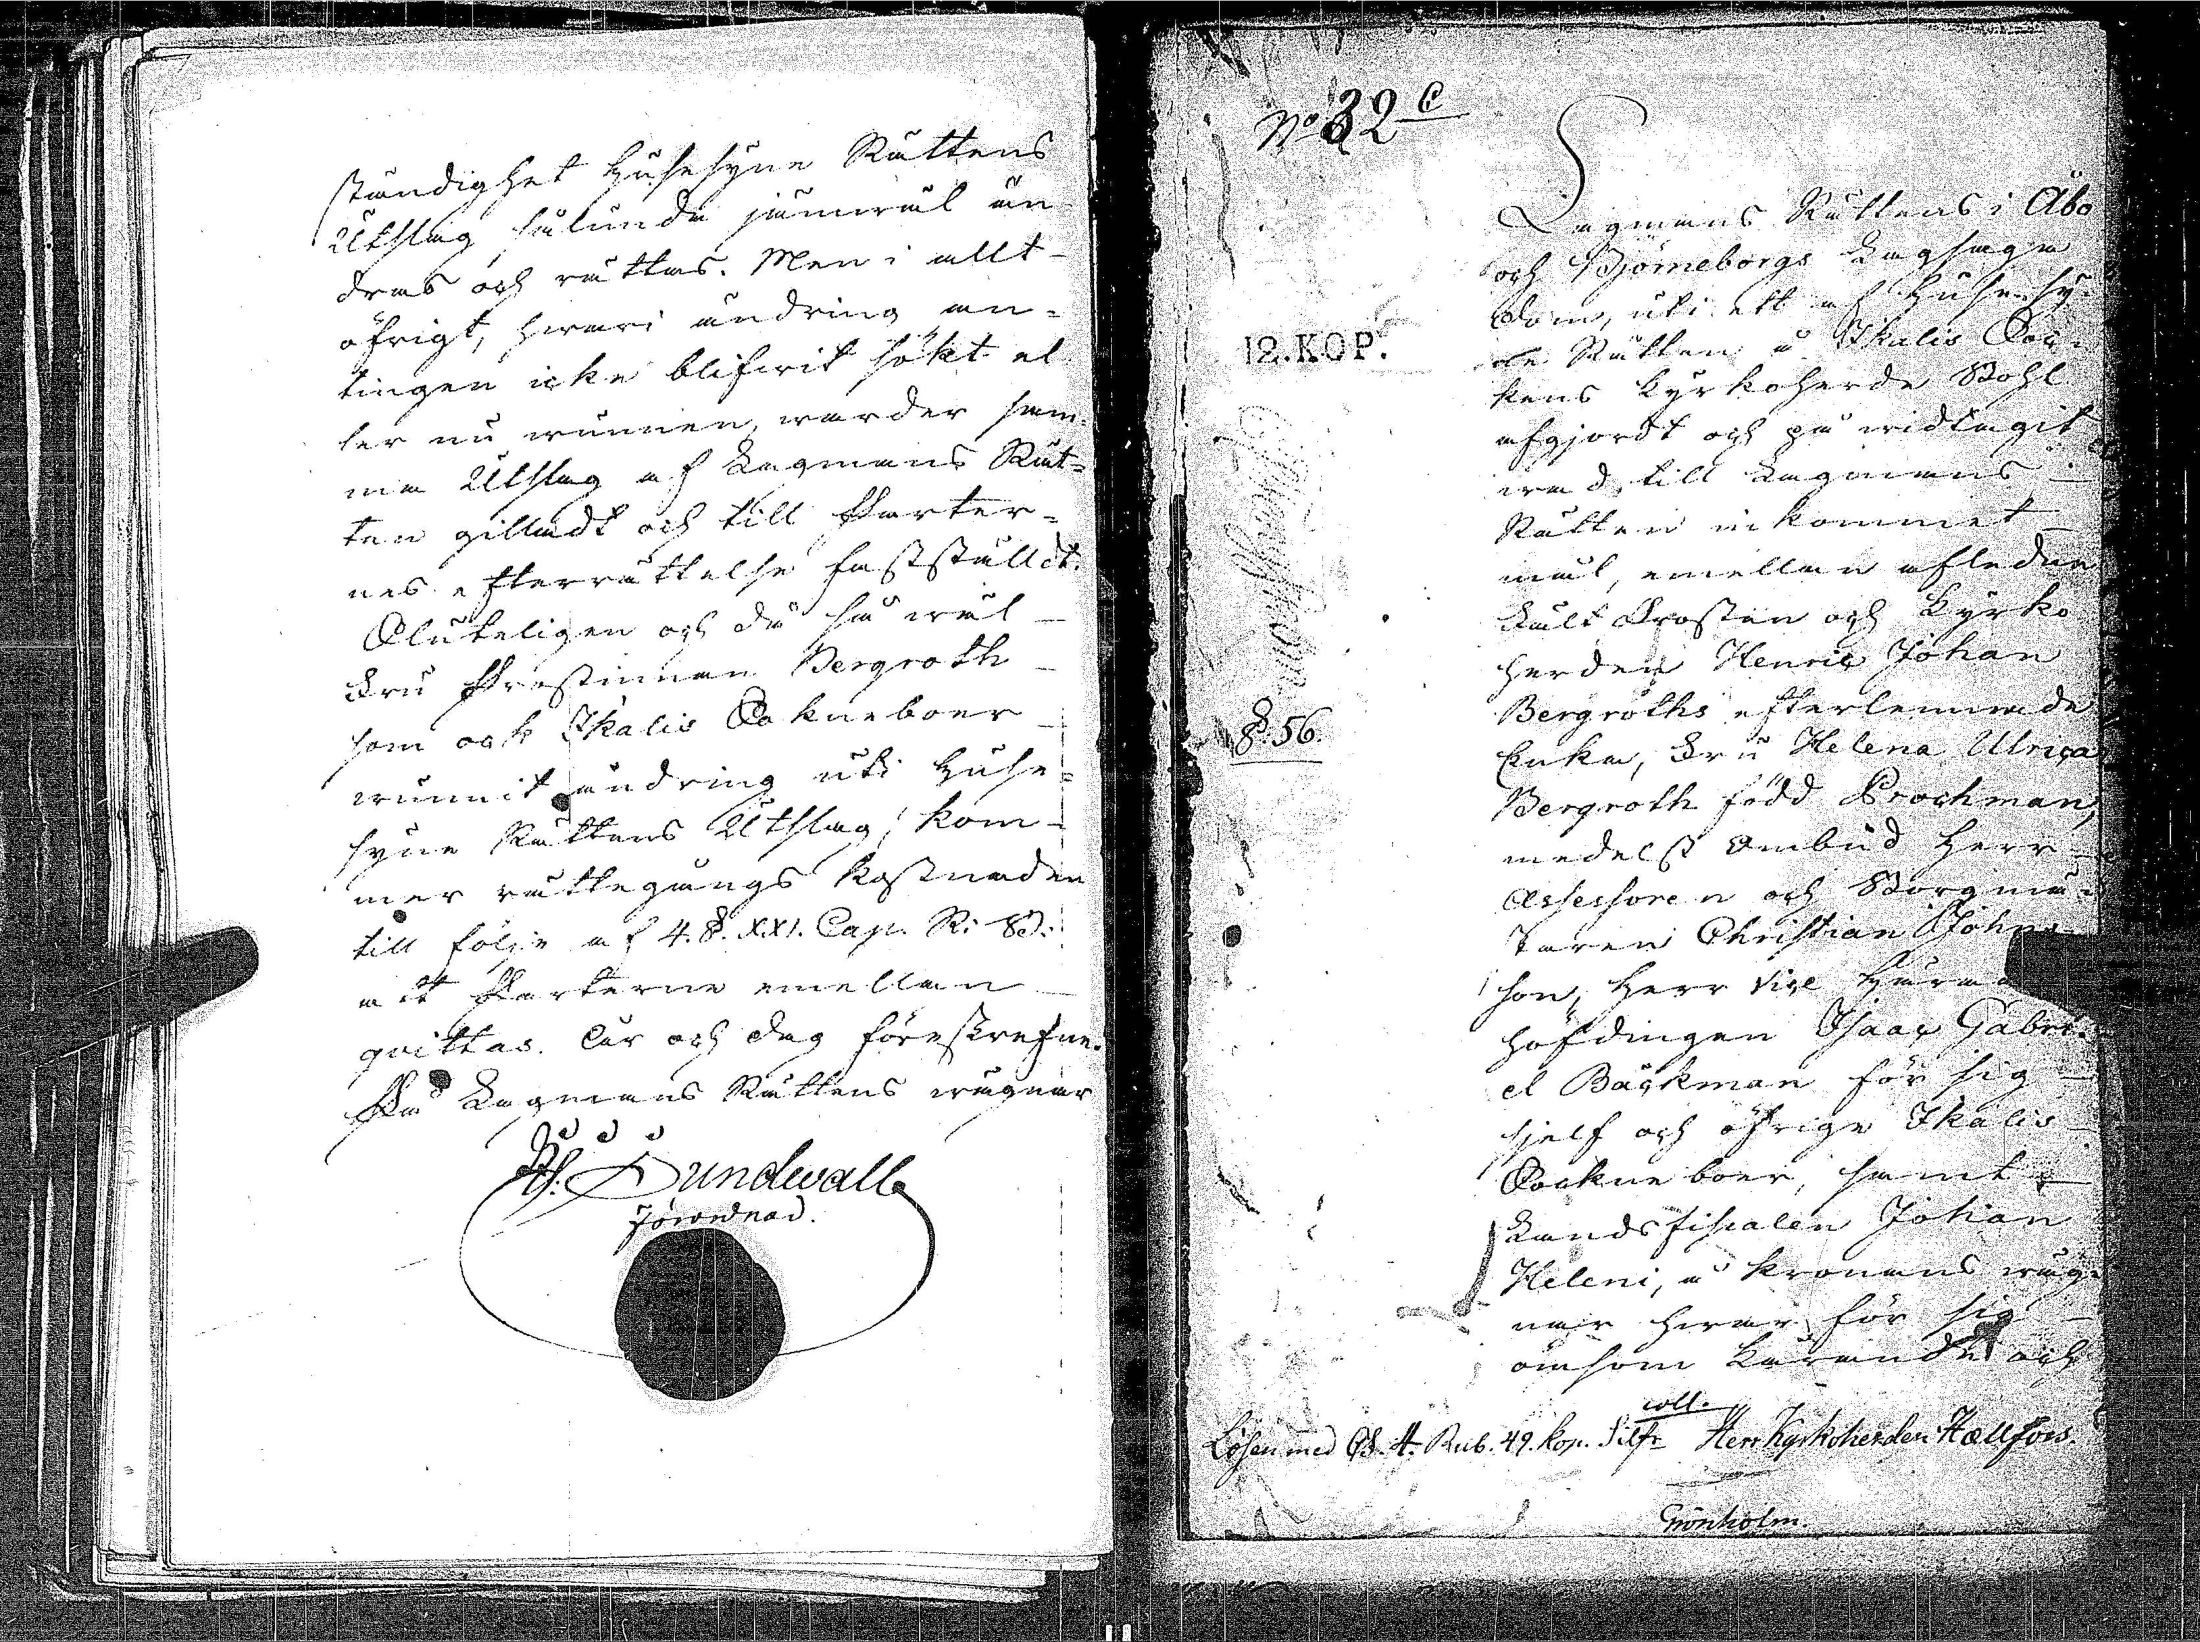 ständighet Husesyne Rättens
Utslag sålunda jämwäl än
dras och rättas. Men i allt
öfrigt, hwari ändring an-
tingen icke blifwit sökt el
ler nu wunnen, warder sam-
ma Utslag af Lagmans Rät-
ten gilladt och till Parter-
nes efterrättelse fastställdt.
Sluteligen och då så wäl
Fru Prostinnan Bergroth
som ock Ikalis Sokneboer
wunnit ändring uti Huse-
syne Rättens Utslag, kom-
mer rättegångs kostnaden
till följe af 4. §. XXI. Cap. R: B.
att Parterne emellan
qvittas. År och dag föreskrefne.
På Lagmans Rättens wägnar
Sundwall
förordnad.
No 32 C
Lagmans Rättens i Åbo
och Björneborgs Lagsaga
Dom, uti ett af Husesy-
ne Rätten å Ikalis Soc-
kens Kyrkoherde Bohl
afgjordt och på widtagit
wad, till Lagmans
Rätten inkommet
mål, emellan afledne
12. KOP.
Fält Prosten och Kyrko
herden Henric Johan
Bergroths efterlemnade
§. 56.
Enka, Fru Helena Ulrica
Bergroth född Prochman,
medelst Ombud Herr
Assessoren och Borgmä-
staren Christian Johns-
son, Herr Vice Härads
höfdingen Isaac Gabri-
el Bäckman för sig
sjelf och öfrige Ikalis
Sockneboer, samt
Landsfiscalen Johan
Heleni, å Kronans wäg-
nar hwar för sig
ömsom Kärande och
coll.
Lösen med 4. Rub. 49. kop. Silfr Herr Kyrkoherden Hællfors.
Grönholm.